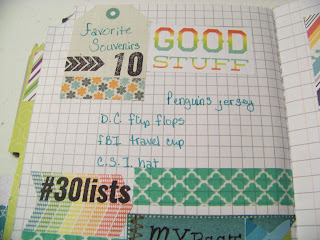 Favorite
Souvenirs
10
GOOD
STUFF
Penguins jersey
D.C flip flops
FBI travel cup
C.S.I hat
#30lists
MY Best